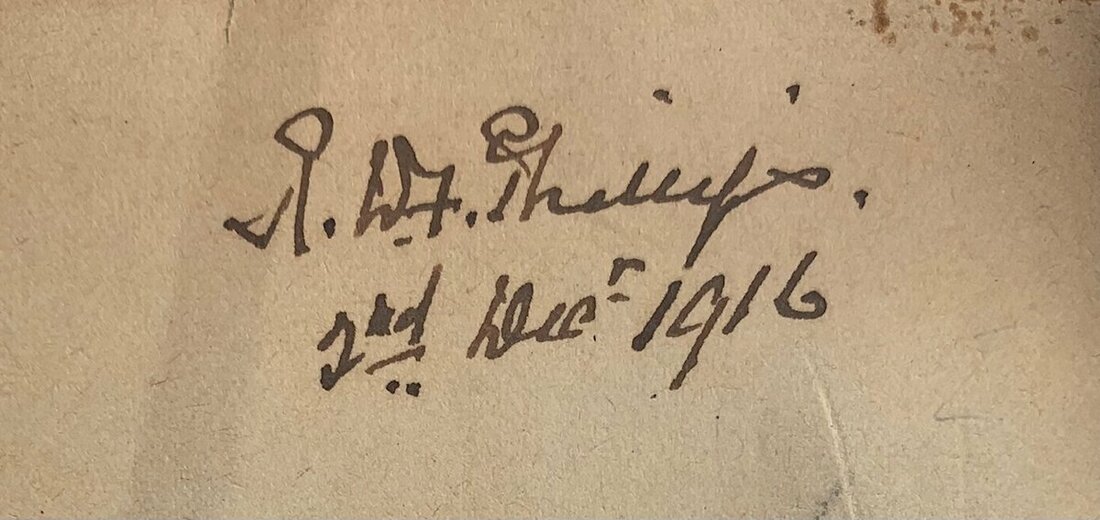 R. W. F. Phillips.
2nd Decr 1916